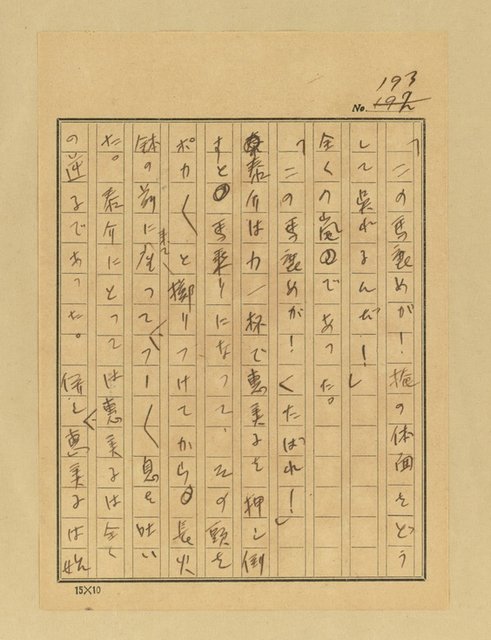 193
No. 192
「この馬鹿めが！ 俺の体面をどう
して呉れるんだ！」
全くの嵐であった。
「この馬鹿めが！ くたばれ！」
君介は力一杯で恵美子を押し倒
すと馬乗りになって、その頭を
ポカ〳〵と擲りつけてから長火
鉢の前に来て座ってフー〳〵息を吐い
た。君介にとっては恵美子は全く
の逆子であった。 併し恵美子は始
15×10